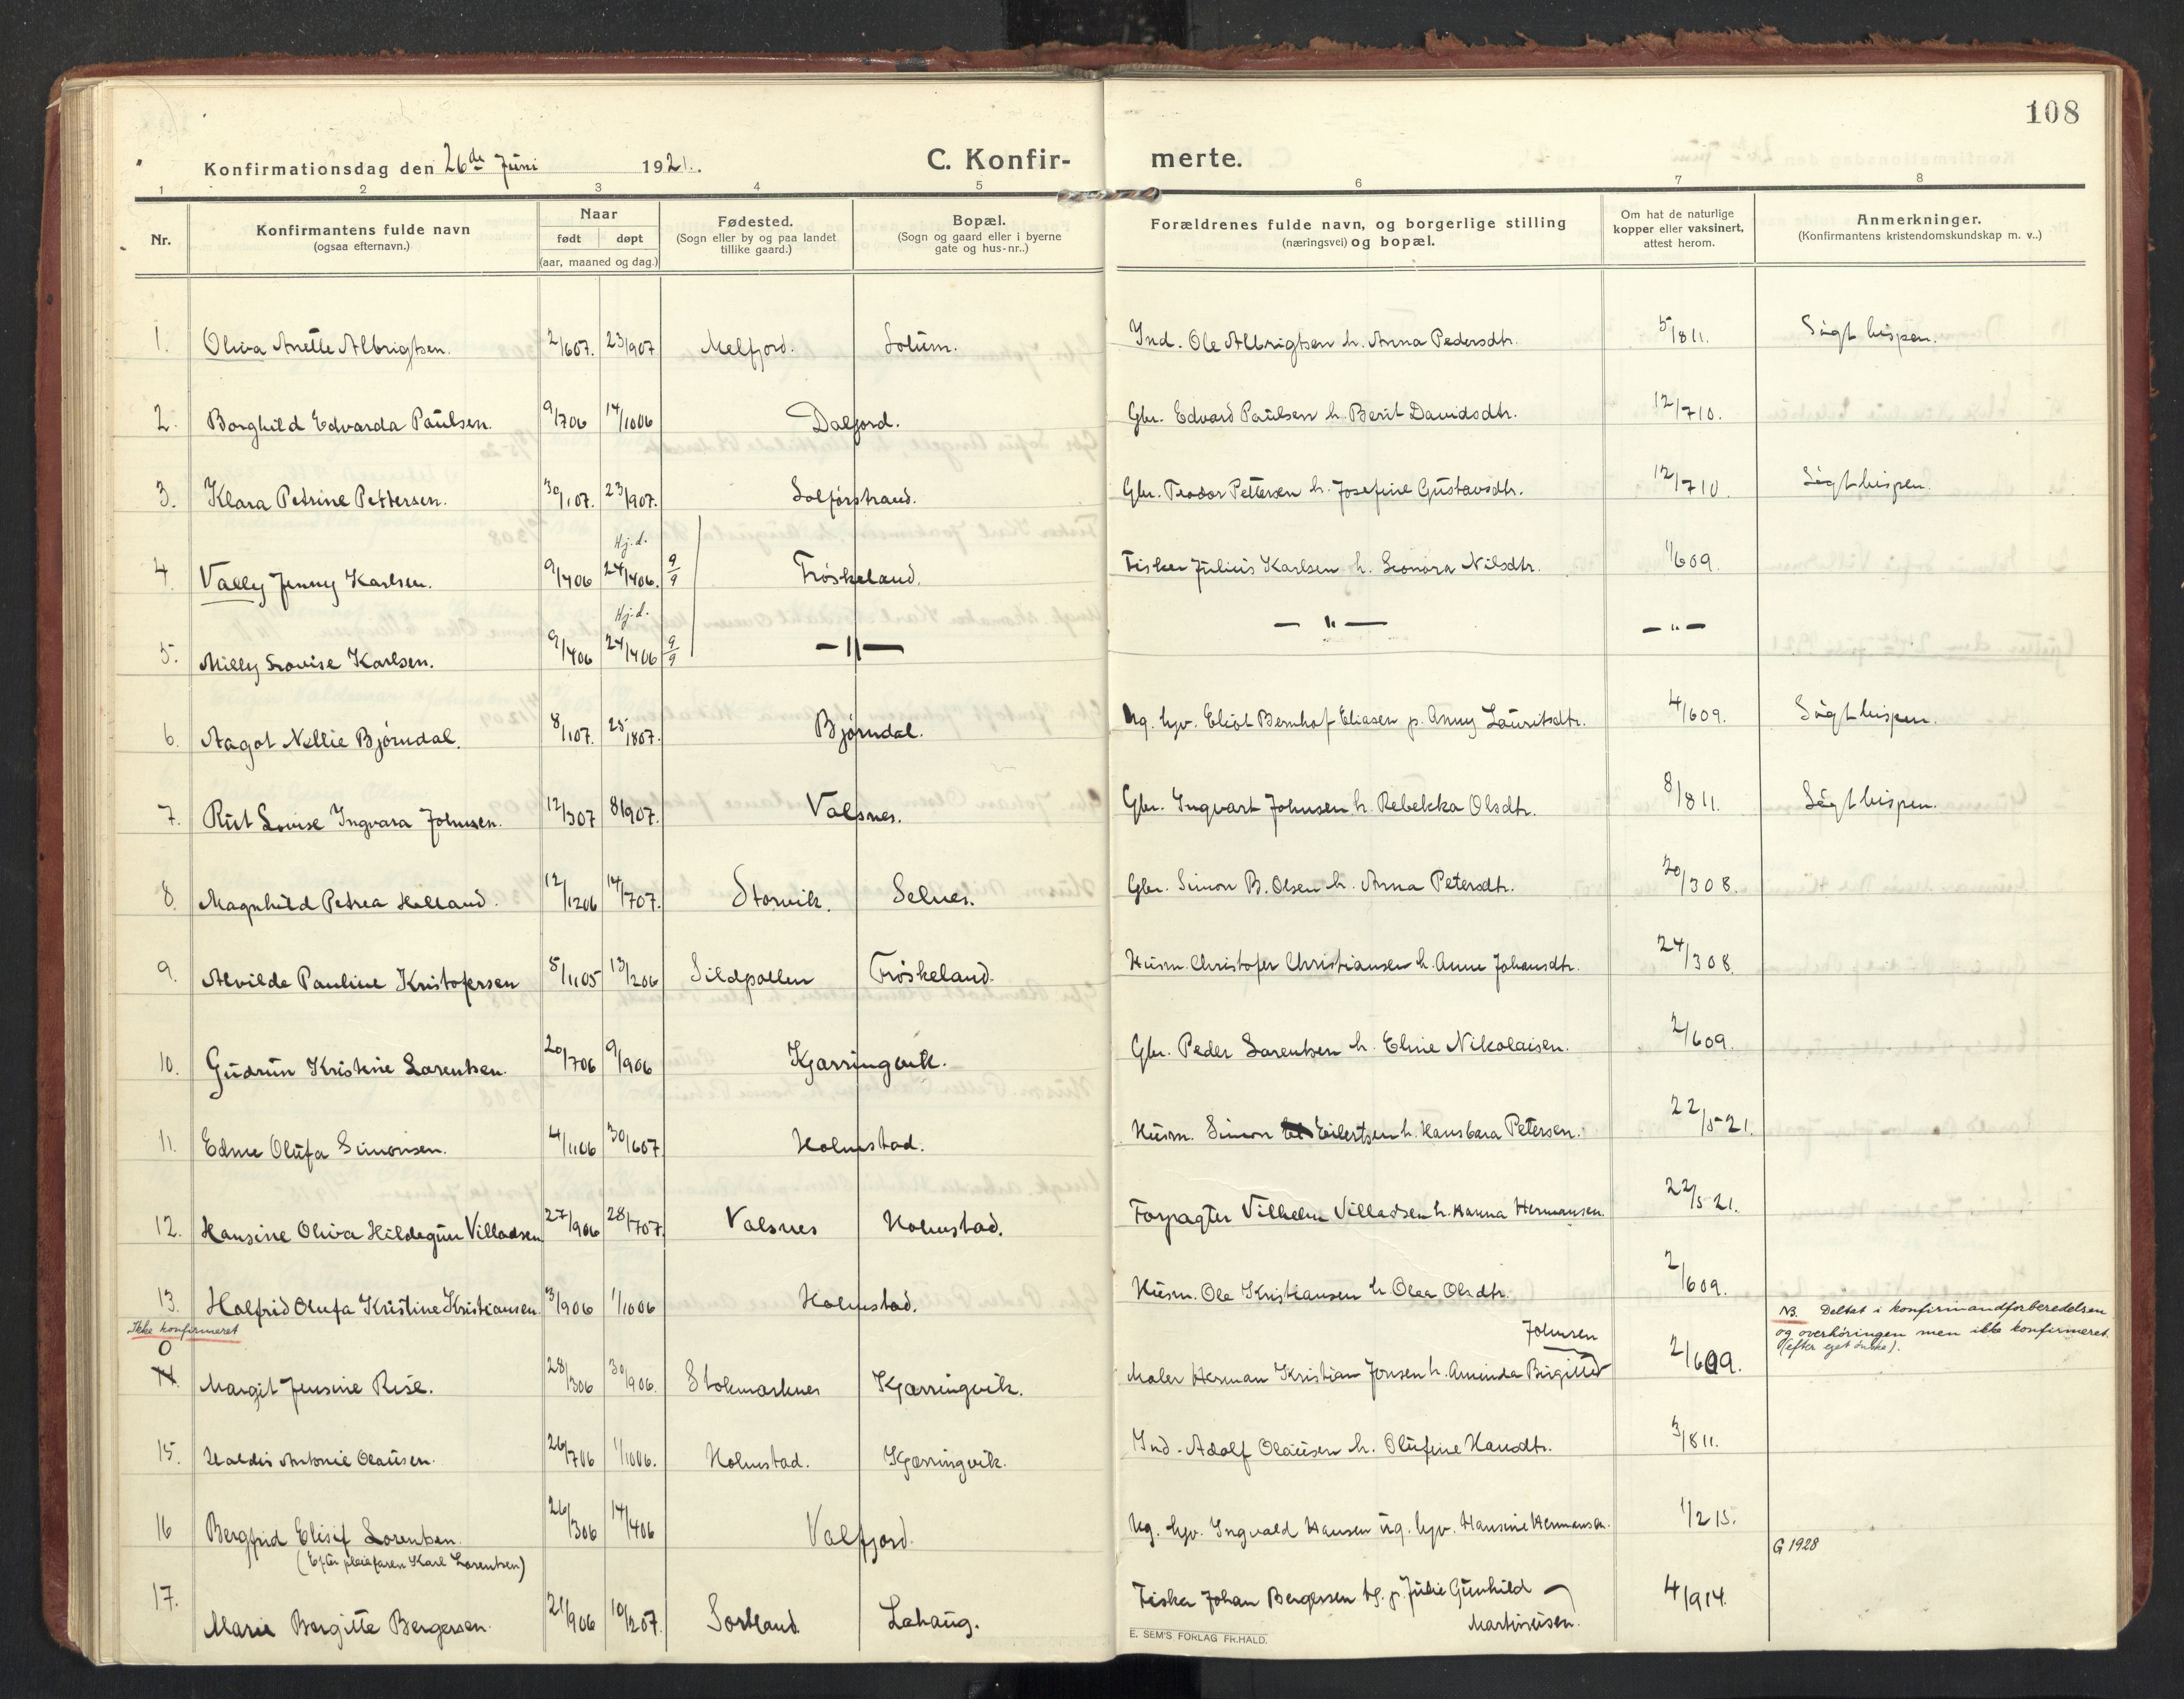 108
Konfirmationsdag den 26de Juni 1921.
C. Konfir-
merte.
1 2 3 4 5 6 7 8
Nr.
Konfirmantens fulde navn
(ogsaa efternavn.)
Naar
født døpt
(aar, maaned og dag.)
Fødested.
(Sogn eller by og paa landet
tillike gaard.)
Bopæl.
(Sogn og gaard eller i byerne
gate og hus-nr..)
Forældrenes fulde navn, og borgerlige stilling
(næringsvei) og bopæl.
Om hat de naturlige
kopper eller vaksinert,
attest herom.
Anmerkninger.
(Konfirmantens kristendomskundskap m. v..)
1. Oliva Anette Albrigtsen. 2/607. 23/907. Melfjord. Solum. Ind. Ole Albrigtsen h. Anna Pedersdtr. 5/811. Søgt bispen.
2. Borghild Edvarda Paulsen. 9/706 14/1006 Dalfjord. Gbr. Edvard Paulsen h. Berit Davidsdtr. 12/710.
3. Klara Petrine Pettersen. 30/107. 23/907. Solfjorstrand. Gbr. Teodor Pettersen h. Josefine Gustavsdtr. 12/710. Søgt bispen.
Hj.d.
4. Vally Jenny Karlsen. 9/406 24/406. 9/9 Frøskeland. Fisker Julius Karlsen h. Leonora Nilsdtr. 1/609.
Hj.d.
5. Milly Lovise Karlsen. 9/406 24/406 9/9 — " — — " — — " —
6. Aagot Nellie Bjørndal. 8/107. 25/807. Bjørndal. Ug. hjv. Eliot Bernhof Eliasen p. Anny Lauritsdtr. 4/609. Søgt bispen.
7. Rut Lovise Ingvara Johnsen. 12/307 8/907. Valsnes. Gbr. Ingvart Johnsen h. Rebekka Olsdtr. 8/811. Søgt bispen.
8. Magnhild Petrea Helland. 12/1206 14/707. Storvik. Selnes. Gbr. Simon B. Olsen h. Anna Petersdtr. 20/308.
9. Alvilde Pauline Kristofersen 5/1105 13/206 Sildpollen Frøskeland. Husm. Christofer Christiansen h. Anne Johansdtr. 24/308.
10. Gudrun Kristine Lorentsen. 20/706 9/906 Kjærringvik. Gbr. Peder Lorentsen h. Eline Nikolaisen. 2/609.
11. Edme Olufa Simonsen. 4/1106 30/607 Holmstad. Husm. Simon Eilertsen h. Hansbara Petersen. 22/5-21.
12. Hansine Oliva Hildegun Villadsen 27/906 28/707. Valsnes Holmstad. Forpagter Vilhelm Villadsen h. Hanna Hermansen. 22/5 21.
13. Halfrid Olufa Kristine Kristiansen. 3/906 1/1006 Holmstad. Husm. Ole Kristiansen h. Olea Olsdtr. 2/609.
Ikke konfirmeret
0
NB. Deltat i konfirmandforberedelsen
og overhøringen men ikke konfirmeret
(efter eget ønske).
Johnsen
14. Margit Jensine Rise. 28/306 30/906. Stokmarknes Kjærringvik. Maler Herman Kristian Jonsen h. Aminda Birgitte 2/609.
15. Haldis Antonie Olausen. 26/706 1/1006. Holmstad. Kjærringvik. Ind. Adolf Olausen h. Olufine Hansdtr. 3/811.
16 Bergfrid Elisif Lorentsen. 26/306 14/406 Valfjord. Ug. hjv. Ingvald Hansen ug. hjv. Hansine Hermansen. 1/215.
(Efter pleiefaren Karl Lorentsen)
G 1928
17. Marie Bergitte Bergersen. 21/906 10/207. Sortland Lahaug. Fisker Johan Bergersen p. Julie Gunhild 4/914.
Martinusen.
E. SEM'S FORLAG FR.HALD.